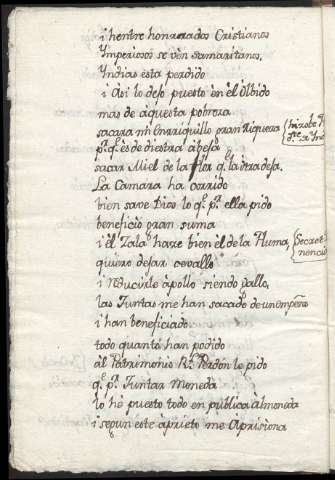 i hentre honrrados Cristianos
Ymperiosos se vèn Samaritanos,
Yndias està perdido
i Asi lo dejo puesto en èl òlbido
mas de àquesta pobreza
sacarà mi Enrriquillo gran Riqueza
pr. q. ès de diestra àbeja
sacar Miel de la flor q. la otra deja.
La Camara ha corrido
bien save Dios lo q. pa. ella pido
beneficiò gran suma
i èl Zala harè bien èl de la Pluma,
quiero dejar cevallo
i reducirle à pollo siendo gallo,
las Juntas me han sacado de un empeño
i han beneficiado
todo quanto han podido
àl Patrimonio Rl. Perdòn le pido
q. pa. Juntar Moneda
lo hè puesto todo en publica almoneda
i segun este àprieto me Aprisiona